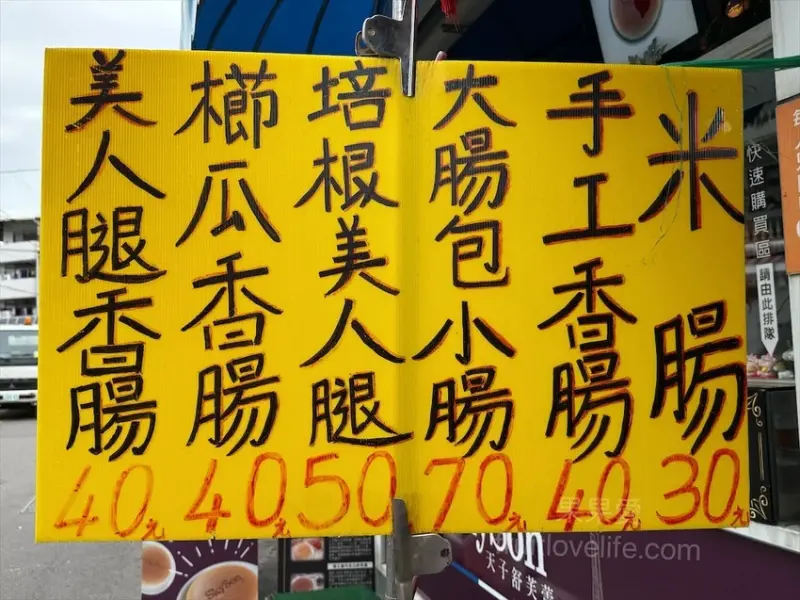 米腸
30元
手工香腸
40元
大腸包小腸
70元
培根美人腿
50元
櫛瓜香腸
40元
美人腿香腸
40元
快速購買區
請由此排隊
天子舒芙蕾
果果愛
lovelife.com